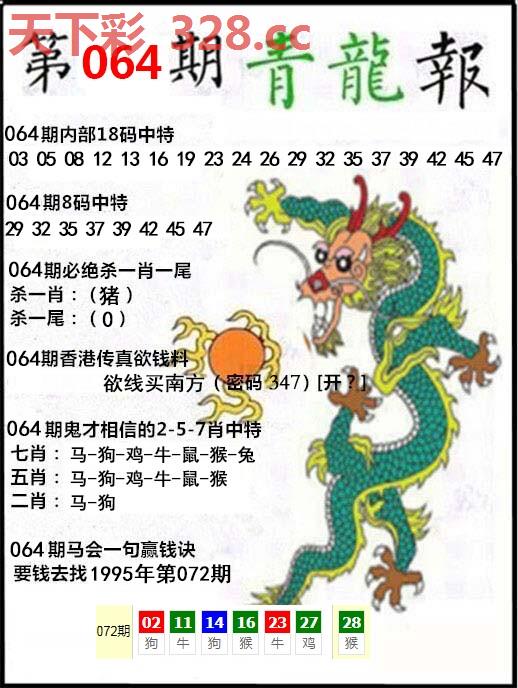 天下彩 328.cc
第064期青龍報
064期内部18码中特
03 05 08 12 13 16 19 23 24 26 29 32 35 37 39 42 45 47
064期8码中特
29 32 35 37 39 42 45 47
064期必绝杀一肖一尾
杀一肖：（猪）
杀一尾：（0）
064期香港传真欲钱料
欲线买南方（密码 347）[开？]
064期鬼才相信的2-5-7肖中特
七肖：马-狗-鸡-牛-鼠-猴-兔
五肖：马-狗-鸡-牛-鼠-猴
二肖：马-狗
064期马会一句赢钱诀
要钱去找1995年第072期
072期 02 11 14 16 23 27 28
狗 牛 狗 猴 牛 鸡 猴